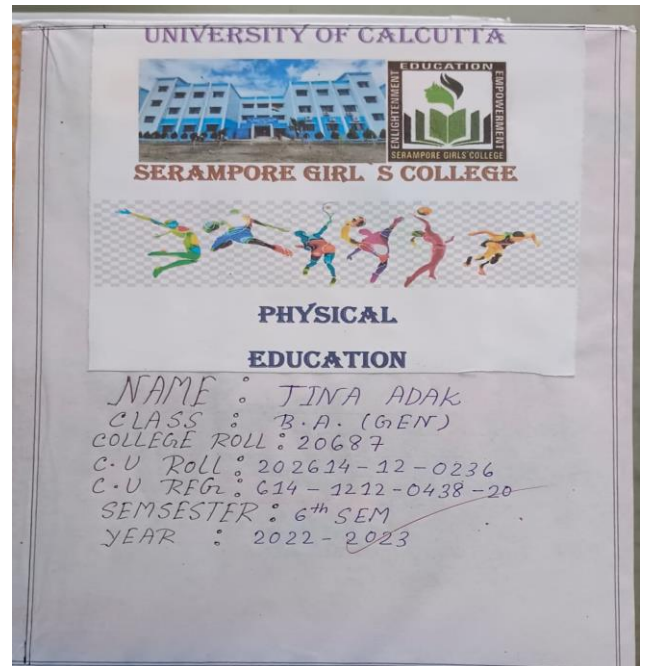 UNIVERSITY OF CALCUTTA
EDUCATION
ENLIGHTENMENT
EMPOWERMENT
SERAMPORE GIRLS' COLLEGE
SERAMPORE GIRL S COLLEGE
PHYSICAL
EDUCATION
NAME : TINA ADAK
CLASS : B.A. (GEN)
COLLEGE ROLL : 20687
C.U ROLL : 202614-12-0236
C.U REG : 614-1212-0438-20
SEMSESTER : 6th SEM
YEAR : 2022-2023